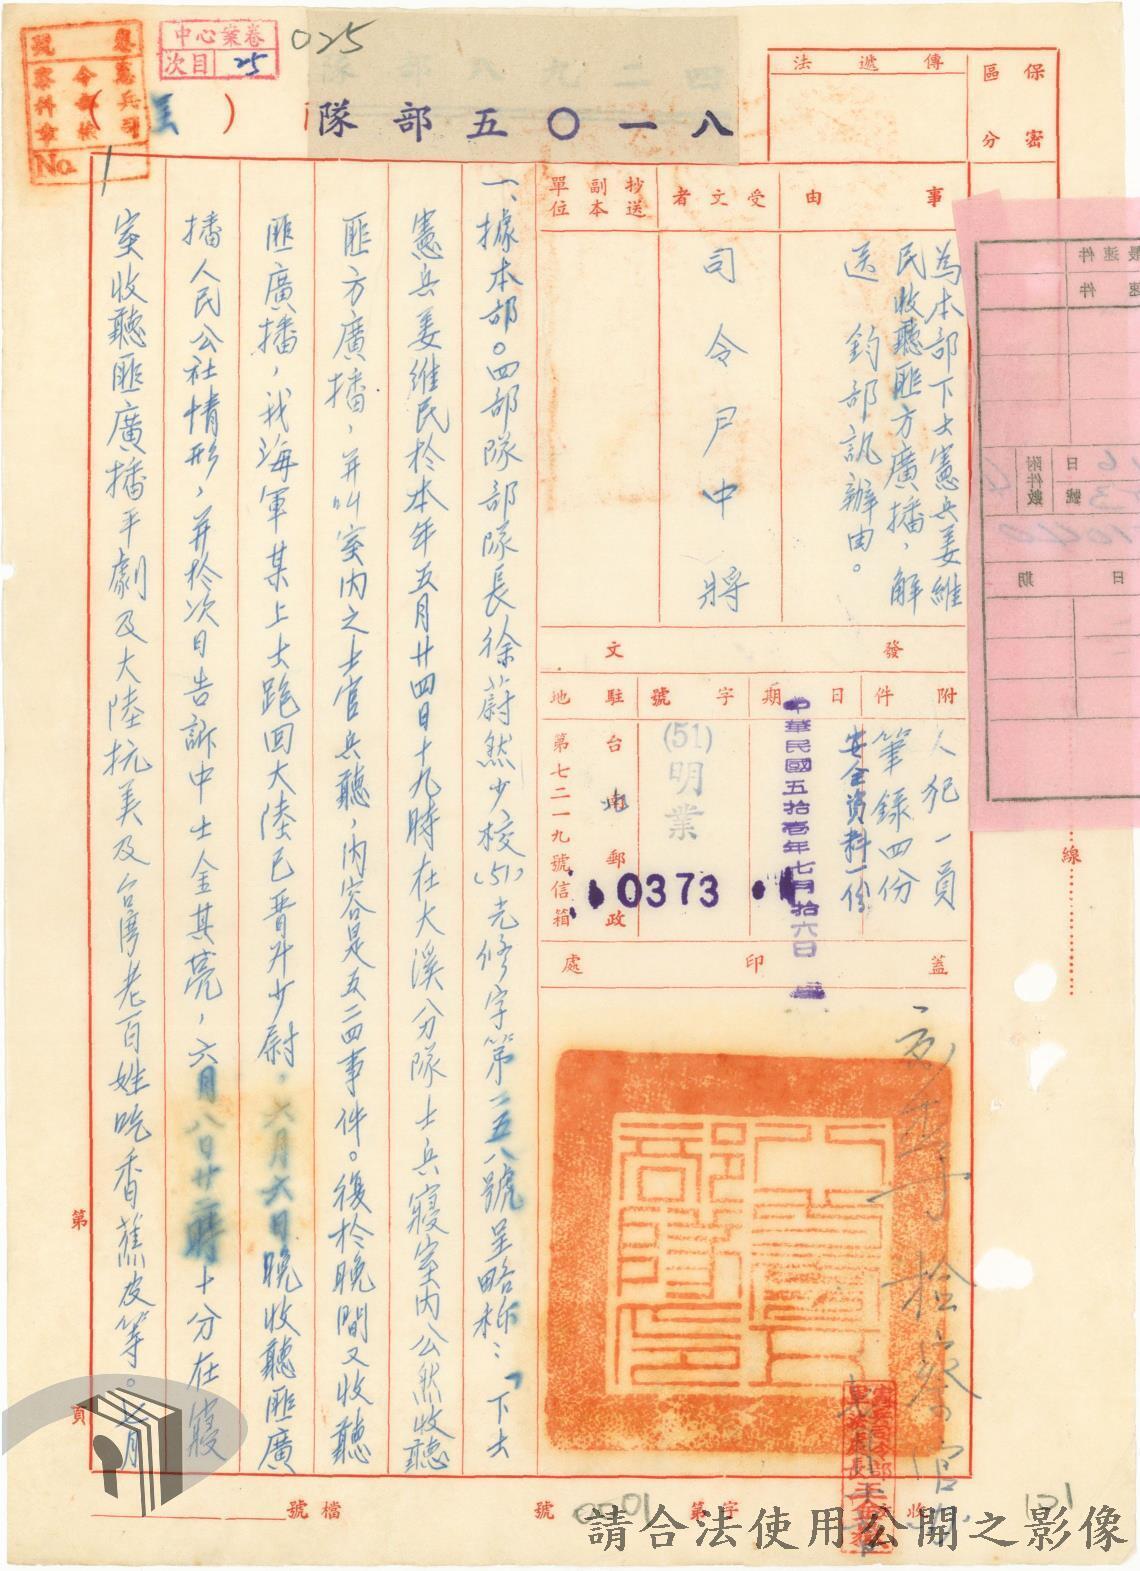 025
中心業卷
次目 25
憲兵司
令部檢
察科章
No. 1
八一〇五部隊
(呈)
保密
區分
傳遞法
事由
為本部下士憲兵姜維
民收聽匪方廣播，解
送 鈞部訊辦由。
受文者
司令尹中將
抄送
副本
單位
發文
附件
人犯一員
筆錄四份
安全資料一份
日期
中華民國五拾壹年七月拾六日
字號
(51)明業
0373
駐地
台南郵政
第七二一九號信箱
蓋印處
一、據本部。四部隊部隊長徐蔚然少校(51)先修字第二五八號呈略称：「下士
憲兵姜維民於本年五月廿四日十九時在大溪分隊士兵寢室內公然收聽
匪方廣播，并叫室內之士官兵聽，內容是五二四事件。復於晚間又收聽
匪廣播，我海軍某上士跑回大陸已晋升少尉，六月六日晚收聽匪廣
播人民公社情形，并於次日告訴中士金其亮，六月八日廿二時十分在寢
室收聽匪廣播平劇及大陸抗美及台灣老百姓吃香蕉皮等。七月
第
頁
線
最速件
速件
附件數
日
號
日期
檔號
收
字第
0001
號
131
檢察官
請合法使用公開之影像